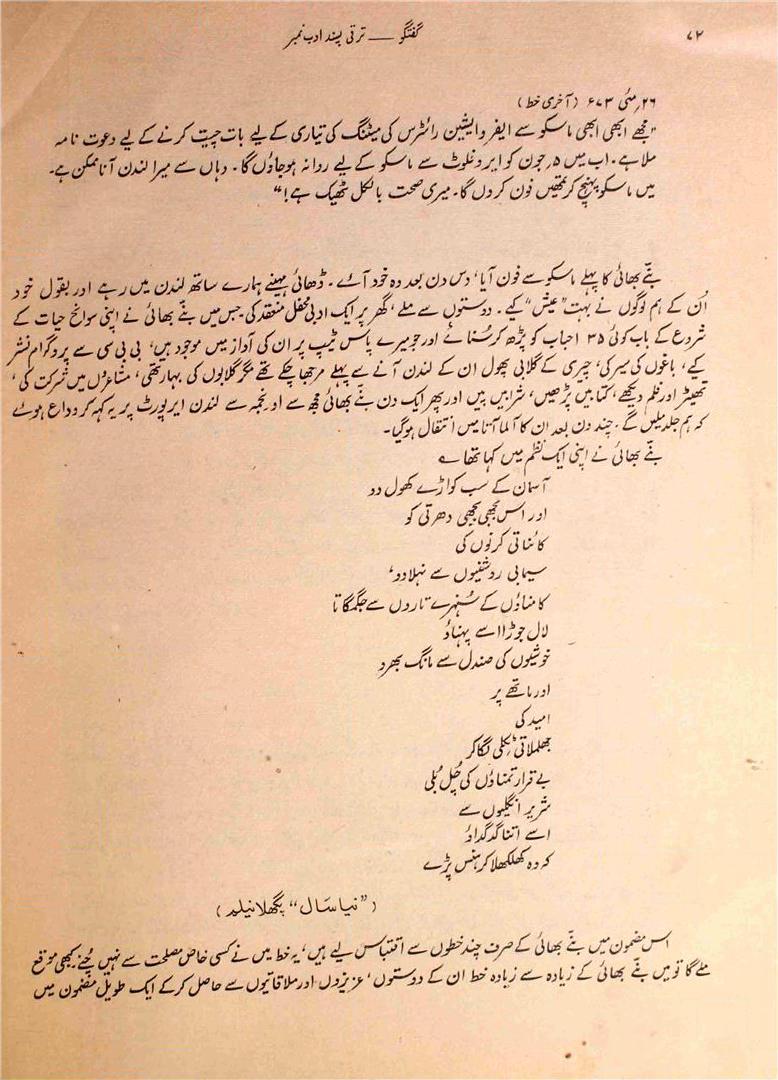 ۷۲
گفتگو —— ترقی پسند ادب نمبر
۲۶؍مئی ۷۳ء (آخری خط)
"مجھے ابھی ابھی ماسکو سے ایفرو ایشین رائٹرس کی میٹنگ کی تیاری کے لیے بات چیت کرنے کے لیے دعوت نامہ
ملا ہے۔ اب میں ۵؍جون کو ایروفلوٹ سے ماسکو کے لیے روانہ ہوجاؤں گا۔ وہاں سے میرا لندن آنا ممکن ہے۔
میں ماسکو پہنچ کر تمھیں فون کردوں گا۔ میری صحت بالکل ٹھیک ہے!"
بنّے بھائی کا پہلے ماسکو سے فون آیا، دس دن بعد وہ خود آئے۔ ڈھائی مہینے ہمارے ساتھ لندن میں رہے اور بقول خود
اُن کے ہم لوگوں نے بہت "عیش" کیے۔ دوستوں سے ملے، گھر پر ایک ادبی محفل منعقد کی۔ جس میں بنّے بھائی نے اپنی سوانح حیات کے
شروع کے باب کوئی ۳۵ احباب کو پڑھ کر سُنائے اور جو میرے پاس ٹیپ پر ان کی آواز میں موجود ہیں، بی بی سی سے پروگرام نشر
کیے، باغوں کی سیر کی، چیری کے گلابی پھول ان کے لندن آنے سے پہلے مرجھا چکے تھے مگر گلابوں کی بہار تھی، مشاعروں میں شرکت کی،
تھیٹر اور فلم دیکھے، کتابیں پڑھیں، شرابیں پیں اور پھر ایک دن بنّے بھائی مجھ سے اور نجمہ سے لندن ایرپورٹ پر یہ کہہ کر وداع ہوئے
کہ ہم جلد ملیں گے۔ چند دن بعد ان کا آلما آتا میں انتقال ہوگیا۔
بنّے بھائی نے اپنی ایک نظم میں کہا تھا ؎
آسمان کے سب کواڑے کھول دو
اور اس بجھی بجھی دھرتی کو
کائناتی کرنوں کی
سیمابی روشنیوں سے نہلا دو،
کامناؤں کے سُنہرے تاروں سے جگمگاتا
لال جوڑا اسے پہناؤ
خوشیوں کی صندل سے مانگ بھرو
اور ماتھے پر
امید کی
جھلملاتی ٹکلی لگا کر
بے قرار تمناؤں کی چُلبُلی
شریر انگلیوں سے
اسے اتنا گدگداؤ
کہ وہ کھلکھلا کر ہنس پڑے
("نیا سَال" پگھلا نیلم)
اس مضمون میں بنّے بھائی کے صرف چند خطوں سے اقتباس لیے ہیں، یہ خط میں نے کسی خاص مصلحت سے نہیں چُنے کبھی موقع
ملے گا تو میں بنّے بھائی کے زیادہ سے زیادہ خط ان کے دوستوں، عزیزوں اور ملاقاتیوں سے حاصل کرکے ایک طویل مضمون میں